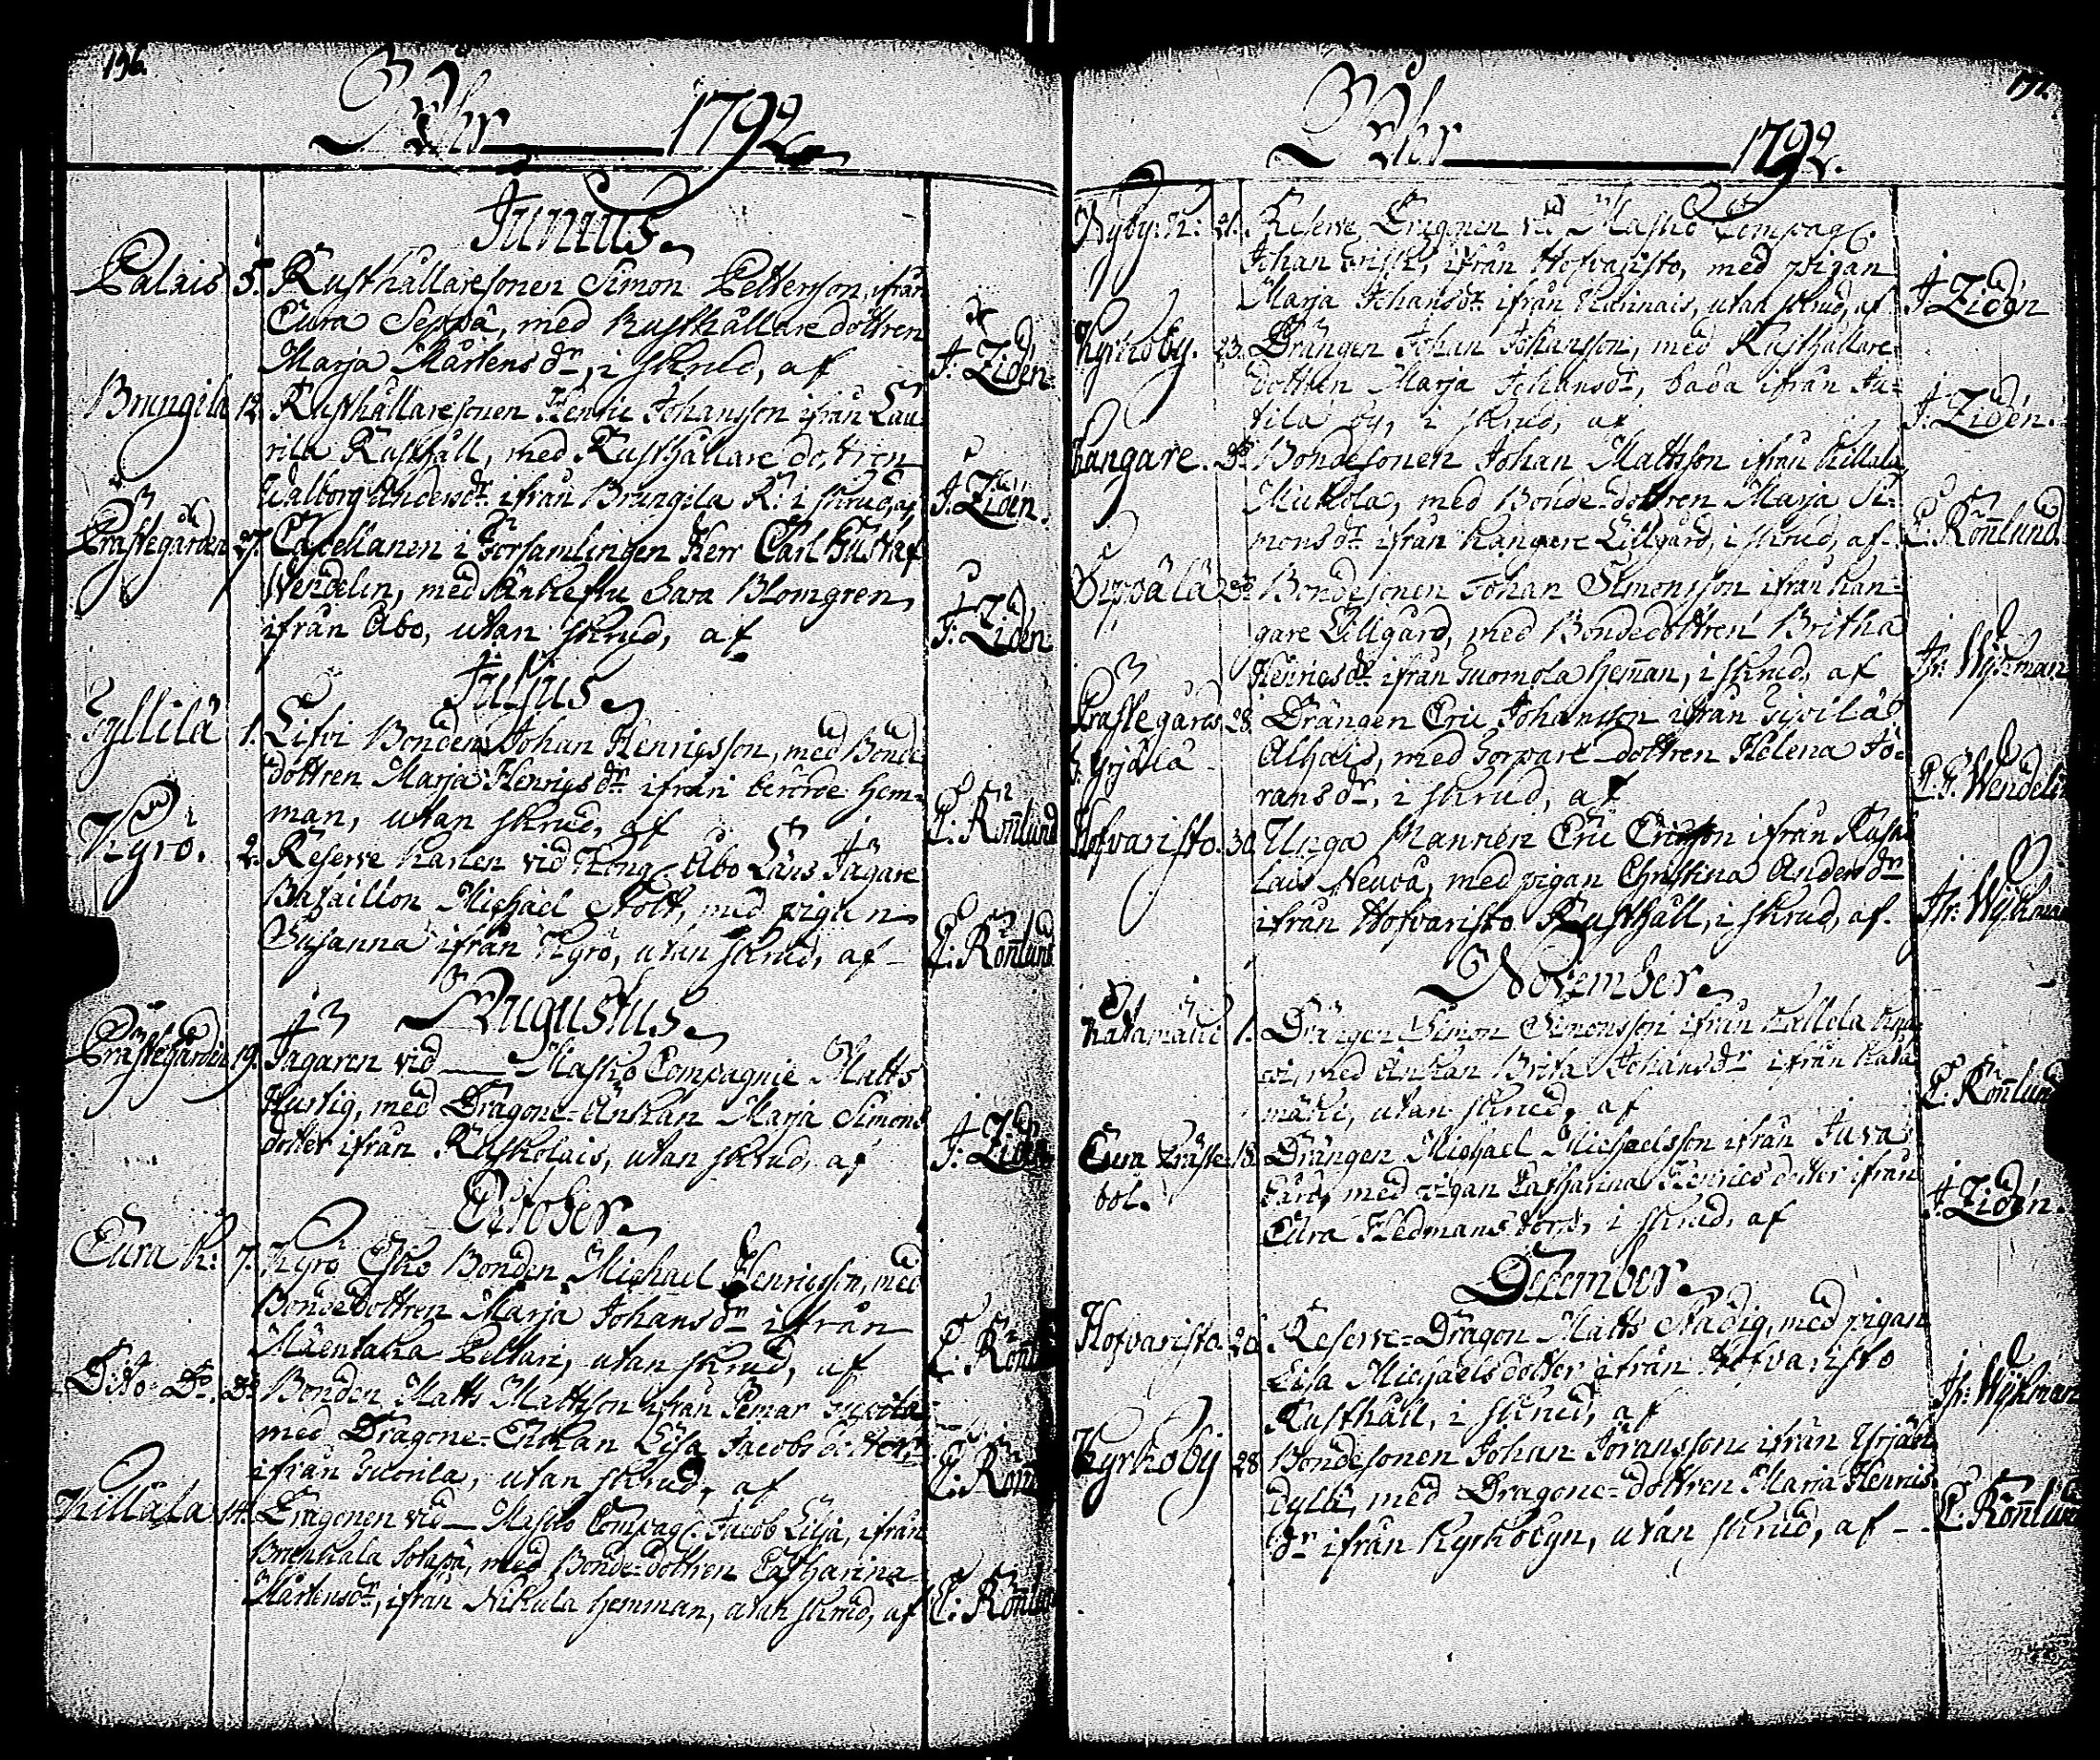 196.
Åhr 1792.
Junius.
Palais 5. Rusthållaresonen Simon Pettersson, ifrån
Eura Seppä, med Rusthållare dottren
Marja Mårtens dr, i skrud, af J: Zidén.
Brungila 12. Rusthållaresonen Henric Johansson ifrån Lau-
rila Rusthåll, med Rusthållare dottren
Walborg Anders dr ifrån Brungila R: i skrud, af J: Zidén.
Prästegården 27. Capellanen i Församlingen Herr Carl Gustaf
Wendelin, med Änkefru Sara Blomgren,
ifrån Åbo, utan skrud, af J: Zidén
Julius.
1. Bonden Johan Henricsson, med Bonde
dottren Marja Henrics dr ifrån berörde Hem-
man, utan skrud, af C: Rönlund
Kyrö. 2. Reserve Karlen vid Kong. Åbo Läns Jägare
Bataillon Michael Stolt, med pigan
Susanna ifrån Kyrö, utan skrud, af C: Rönlund
Augustus.
Prästegården 19. Jägaren vid Masko Compagnie Matts
Hurtig, med Dragone-Änkan Marja Simons
dotter ifrån Ruskolais, utan skrud, af J: Zidén
October.
Eura K: 7. Kyrö Esko Bonden Michael Henricsson, med
Bondedottren Marja Johans dr ifrån
Mäentaka Pellari, utan skrud, af C: Rönl
Dito Do. Do Bonden Matts Mattsson ifrån Pemar
med Dragone-Enkan Lisa Jacobs dotter
ifrån, utan skrud, af C: Rönl
Killala 14. Dragonen vid Masko Compag. Jacob Lilja, ifrån
med Bonde-dottren Catharina
Mårtens dr, ifrån Nikula hemman, utan skrud, af C: Rönlun
197.
Åhr 1792.
21. Reserve Dragonen vid Masko Compag.
Johan Frisk, ifrån Hofvaristo, med pigan
Marja Johans dr ifrån Karinais, utan skrud, af J: Zidén
Kyrkoby. 23. Drängen Johan Johansson, med Rusthållare
dottren Marja Johans dr, båda ifrån Ju-
tila by, i skrud, af J: Zidén.
Kangare. Do Bondesonen Johan Mattsson ifrån Killala
Mickola, med Bonde-dottren Marja Si-
mons dr ifrån Kangare Lillgård, i skrud, af C: Rönlund.
Do Bondesonen Johan Simonsson ifrån Kan-
gare Lillgård, med Bondedottren Britha
Henrics dr ifrån Suomola Heman, i skrud, af Jh: Wijkman
Prästegårds 28. Drängen Eric Johansson ifrån
Alhais, med Torpare-dottren Helena Jö-
rans dr, i skrud, af C. G. Wendelin
Hofvaristo. 30. Unga Mannen Eric Ericsson ifrån Rusko-
lais Neuvå, med pigan Christina Anders dr
ifrån Hofvaristo Rusthåll, i skrud, af Jh: Wijkman
November.
Katamäki 1. Drängen Simon Simonsson ifrån Kallela
med Änkan Brita Johans dr ifrån Kata
mäki, utan skrud, af C: Rönlund
Eura Präste- 18. Drängen Michael Michaelsson ifrån Juva
bol. Gård, med pigan Catharina Henrics dotter ifrån
Eura Hedmans torp, i skrud, af J: Zidén.
December.
Hofvaristo. 26. Reserve-Dragon Matts Nådig, med pigan
Lisa Michaels dotter ifrån Hofvaristo
Rusthåll, i skrud, af Jh: Wijkman
Kyrkoby 28. Bondesonen Johan Jöransson ifrån Yrjän
dylli, med Dragone-dottren Maria Henrics
dr ifrån Kyrkobyn, utan skrud, af C: Rönlund